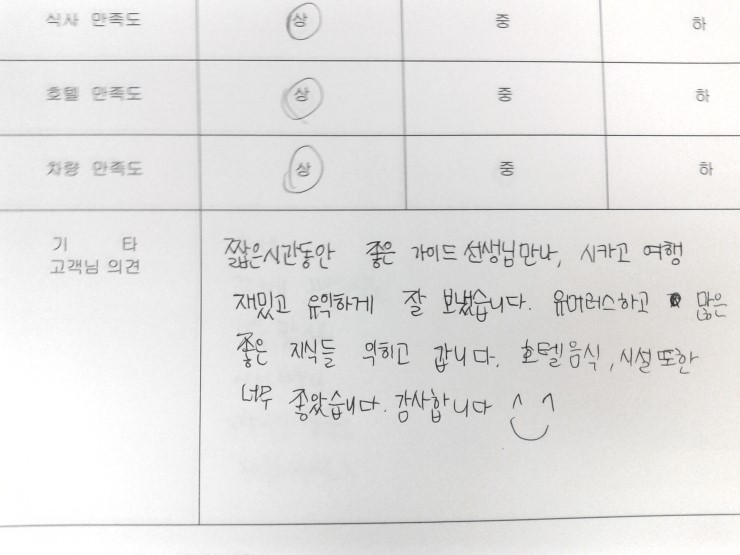 식사 만족도 상 중 하
호텔 만족도 상 중 하
차량 만족도 상 중 하
기 타
고객님 의견
짧은시간동안 좋은 가이드 선생님만나, 시카고 여행
재밌고 유익하게 잘 보냈습니다. 유머러스하고 많은
좋은 지식들 익히고 갑니다. 호텔음식, 시설또한
너무 좋았습니다. 감사합니다 ^ ^